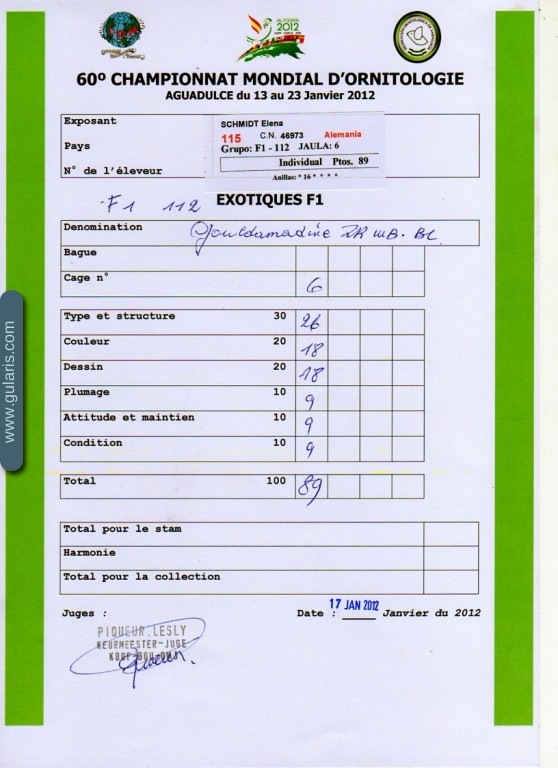 ALMERIA
2012
60º CHAMPIONNAT MONDIAL D'ORNITOLOGIE
AGUADULCE du 13 au 23 Janvier 2012
Exposant
Pays
N° de l'éleveur
SCHMIDT Elena
115 C.N. 46973 Alemania
Grupo: F1 - 112 JAULA: 6
Individual Ptos. 89
Anillas: * 16 * * * *
F1 112 EXOTIQUES F1
Denomination Gouldamadine RK WB. BL
Bague
Cage n° 6
Type et structure 30 26
Couleur 20 18
Dessin 20 18
Plumage 10 9
Attitude et maintien 10 9
Condition 10 9
Total 100 89
Total pour le stam
Harmonie
Total pour la collection
Juges : Date : 17 JAN 2012 Janvier du 2012
PIQUEUR.LESLY
KEURMEESTER-JUGE
www.gularis.com